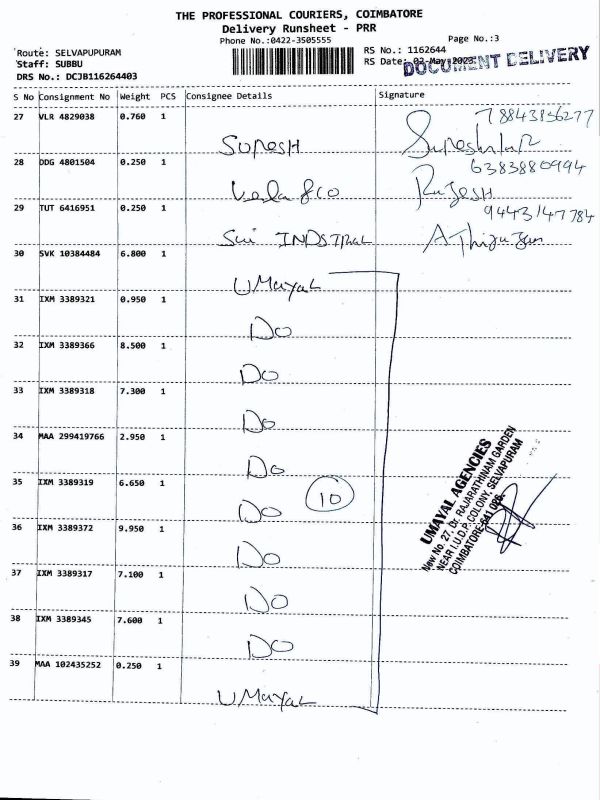 THE PROFESSIONAL COURIERS, COIMBATORE
Delivery Runsheet - PRR
Phone No.:0422-3505555
Page No.:3
Route: SELVAPUPURAM
Staff: SUBBU
DRS No.: DCJB116264403
RS No.: 1162644
RS Date: 02-May-2023
DOCUMENT DELIVERY
S No Consignment No Weight PCS Consignee Details Signature
27 VLR 4829038 0.760 1
78843136277
SURESH
28 DDG 4801504 0.250 1
6383880994
Vesla & CO Rajesh
29 TUT 6416951 0.250 1
9443147784
Sui INDSTRAL
30 SVK 10384484 6.800 1
UMayaL
31 IXM 3389321 0.950 1
Do
32 IXM 3389366 8.500 1
Do
33 IXM 3389318 7.300 1
Do
34 MAA 299419766 2.950 1
Do
35 IXM 3389319 6.650 1
Do 10
36 IXM 3389372 9.950 1
Do
37 IXM 3389317 7.100 1
Do
38 IXM 3389345 7.600 1
Do
39 MAA 102435252 0.250 1
UMayaL
UMAYAL AGENCIES
New No. 27, Dr. RAJARATHINAM GARDEN
NEAR I.U.D.P. COLONY, SELVAPURAM
COIMBATORE-641 026